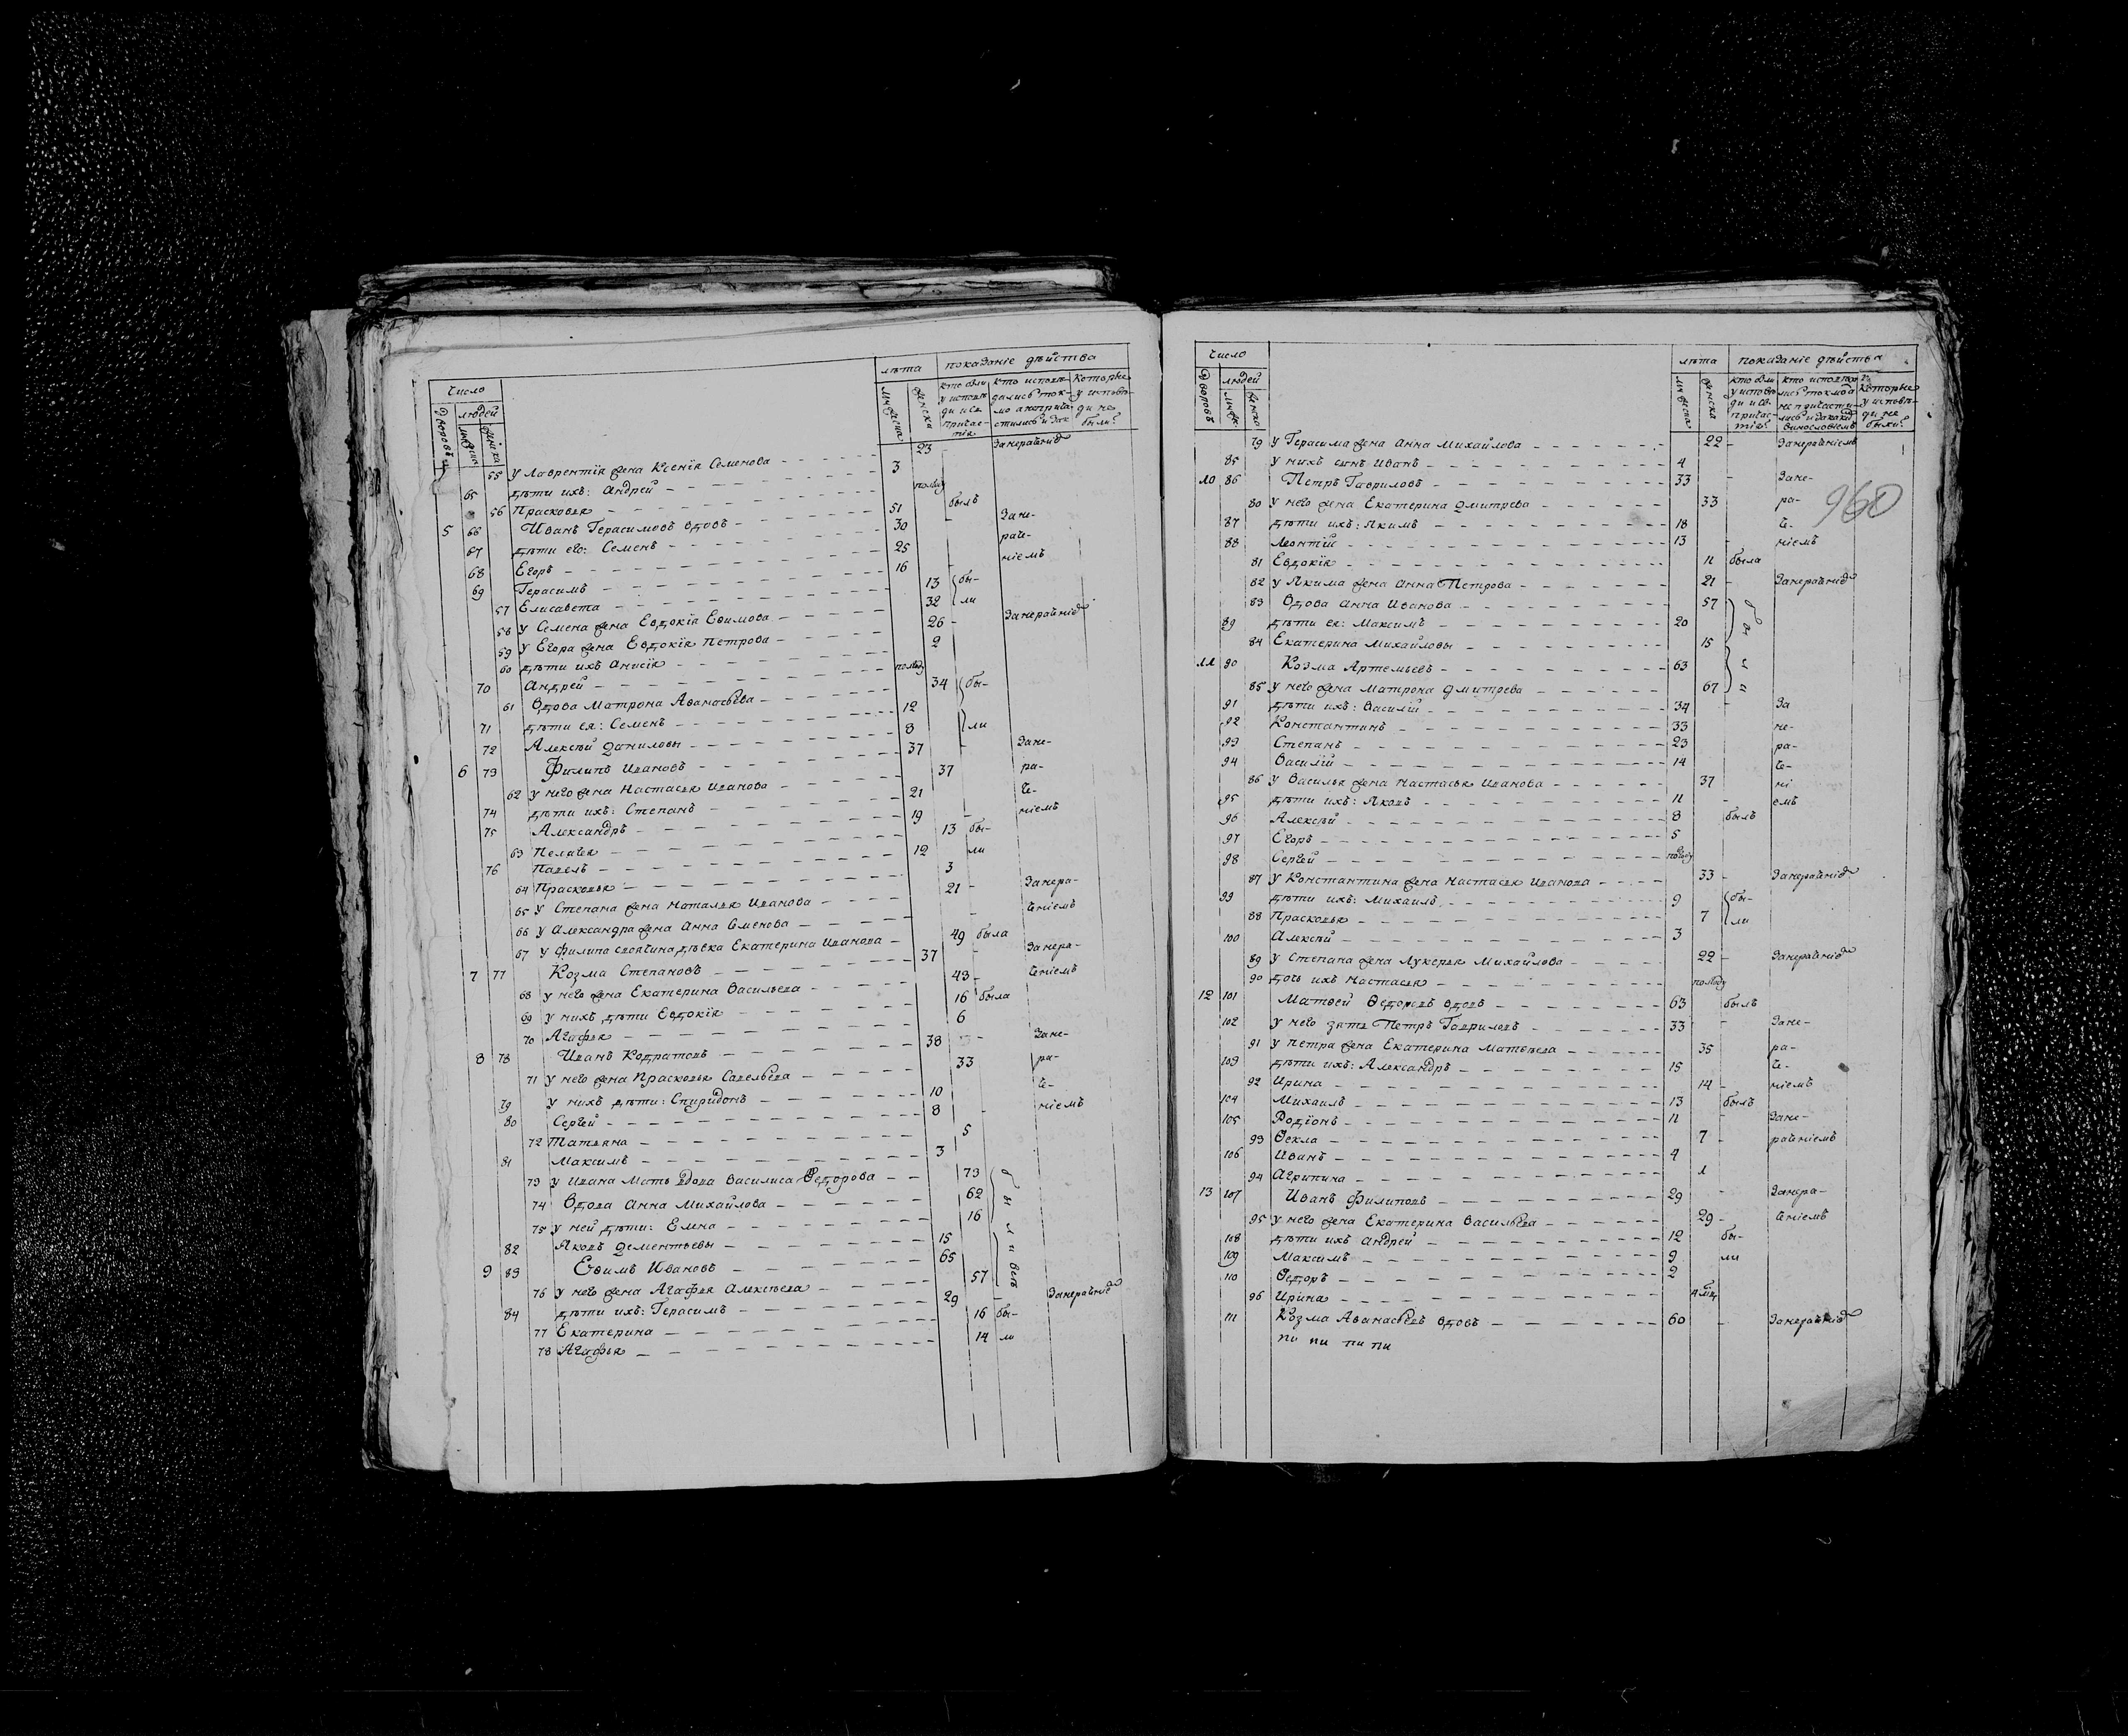 Число
лѣта показаніе дѣйства
Дворовъ людей муж женска
муж женска
кто были у исповѣди и св. причастія
кто исповѣдались токмо а не причастились и зак
Которые у исповѣди не были?
55 У Лаврентїя жена Ксенїя Семенова 23 Занерачнїе
65 дѣти ихъ: Андрей 3
56 Прасковья полгоду
5 66 Иванъ Герасимовъ вдовъ 51 былъ
67 дѣти его: Семенъ 30 Зане-
68 Егоръ 25 раче-
69 Герасимъ 16 нїемъ
57 Елисавета 13 бы-
58 У Семена жена Евдокїя Ефимова 32 ли
59 У Егора жена Евдокїя Петрова 26 Занерачнїе
60 дѣти ихъ Анисїя 2
70 Андрей полгоду
61 Вдова Матрона Аѳанасьева 34 бы-
71 дѣти ея: Семенъ 12
72 Алексѣй Даниловы 8 ли
6 73 Филипъ Ивановъ 37 Зане-
62 У него жена Настасья Иванова 37 ра-
74 дѣти ихъ: Степанъ 21 че-
75 Александръ 19 нїемъ
63 Пелагея 13 бы-
76 Павелъ 12 ли
64 Прасковья 3
65 У Степана жена Наталья Иванова 21 Занера-
66 У Александра жена Анна Семенова ченїемъ
67 У Филипа своячина дѣвка Екатерина Иванова 49 была
7 77 Козма Степановъ 37 Занера-
68 У него жена Екатерина Васильева 43 ченїемъ
69 У нихъ дѣти Евдокїя 16 была
70 Агафья 6
8 78 Иванъ Кодратовъ 38 Зане-
71 У него жена Прасковья Савельева 33 ра-
79 У нихъ дѣти: Спиридонъ 10 че-
80 Сергей 8 нїемъ
72 Татьяна 5
81 Максимъ 3
73 У Ивана Мать вдова Василиса Ѳедорова 73
74 Вдова Анна Михайлова 62
75 У ней дѣти: Елена 16
82 Яковъ Дементьевы 15
были всѣ
9 83 Ефимъ Ивановъ 65
76 У него жена Агафья Алексѣева 57
84 дѣти ихъ: Герасимъ 29 Занерачнїе
77 Екатерина 16 бы-
78 Агафья 14 ли
Число
лѣта показаніе дѣйства
Дворовъ людей муж женска
муж женска
кто были у исповѣди и св. причастія?
кто исповѣдались токмо а не причастились и за каким винословіемъ
Которые у исповѣди не были?
79 У Герасима жена Анна Михайлова 22 Занерачнїемъ
85 У нихъ сынъ Иванъ 4
10 86 Петръ Гавриловъ 33 Зане-
960
80 У него жена Екатерина Дмитрева 33 ра-
87 дѣти ихъ: Якимъ 18 че-
88 Леонтїй 13 нїемъ
81 Евдокїя 11 была
82 У Якима жена Анна Петрова 21 Занерачнїе
83 Вдова Анна Иванова 57
89 дѣти ея: Максимъ 20
84 Екатерина Михайловы 15
11 90 Козма Артемьевъ 63
85 У него жена Матрона Дмитрева 67
были
91 дѣти ихъ: Василїй 34 За
92 Константинъ 33 не-
93 Степанъ 23 ра-
94 Василїй 14 че-
86 У Василья жена Настасья Иванова 37 нї
95 дѣти ихъ: Яковъ 11 емъ
96 Алексѣй 8 былъ
97 Егоръ 5
98 Сергей погоду
87 У Константина жена Настасья Иванова 33 Занерачнїе
99 дѣти ихъ: Михаилъ 9 бы-
88 Прасковья 7 ли
100 Алексѣй 3
89 У Степана жена Лукерья Михайлова 22 Занерачнїе
90 дочь ихъ Настасья полгоду
12 101 Матвей Ѳедоровъ вдовъ 63 былъ
102 У него зять Петръ Гавриловъ 33 Зане-
91 У Петра жена Екатерина Матвѣева 35 ра-
103 дѣти ихъ: Александръ 15 че-
92 Ирина 14 нїемъ
104 Михаилъ 13 былъ
105 Родїонъ 11 Зане-
93 Ѳекла 7 рачнїемъ
106 Иванъ 4
94 Агрипина 1
13 107 Иванъ Филиповъ 29 Занера-
95 У него жена Екатерина Васильева 29 ченїемъ
108 дѣти ихъ Андрей 12 бы-
109 Максимъ 9 ли
110 Ѳедоръ 2
96 Ирина
111 Козма Аѳанасьевъ вдовъ 60 Занерачнїе